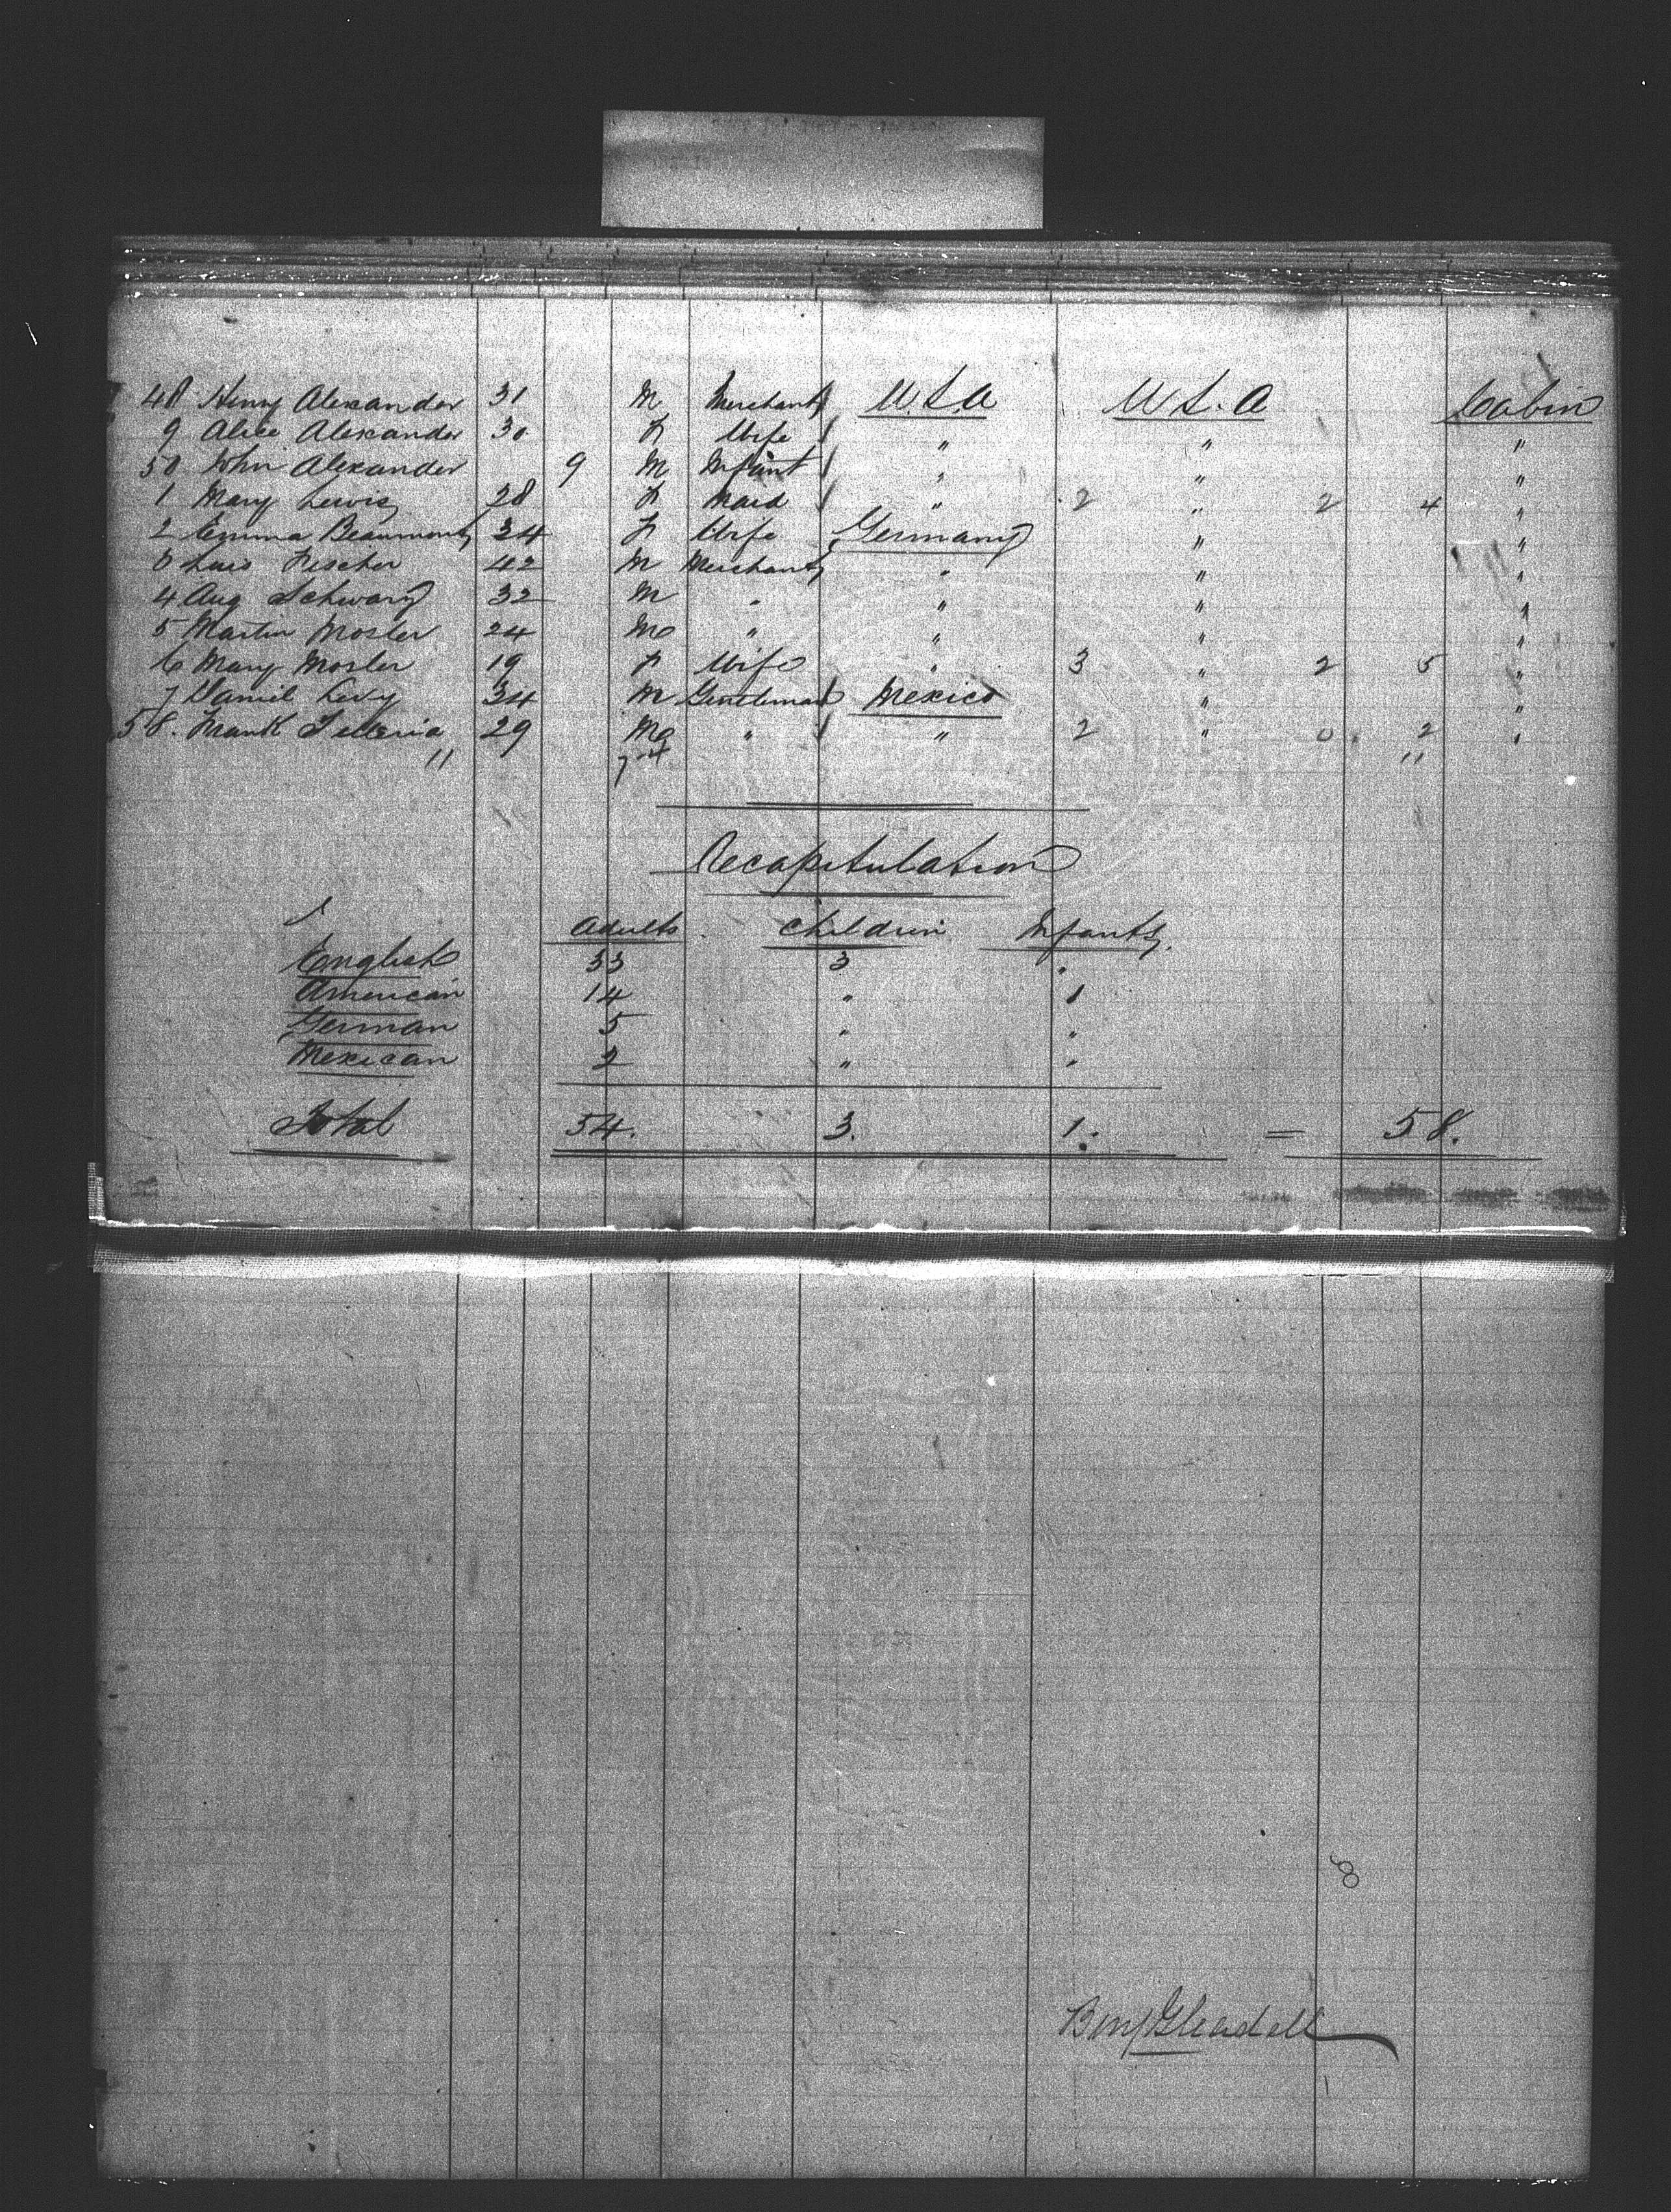 48 Henry Alexander 31 M Merchant U.S.A U S. A Cabin
9 Alice Alexander 30 F Wife " " "
50 John Alexander 9 M Infant " " "
1 Mary Lewis 28 F Maid " 2 " 2 4 "
2 Emma Beaumont 34 F Wife Germany " "
3 Luis Fischer 42 M Merchant " " "
4 Aug Schwarz 32 M " " " "
5 Martin Mosler 24 M " " " "
6 Mary Mosler 19 F Wife " 3 " 2 5 "
7 Daniel Levy 34 M Gentleman Mexico " "
58. Frank Telleria 29 M " " 2 " 0 2 "
11 7 4 11
Recapitulation
Adults Children Infants
English 33 3 "
American 14 " 1
German 5 " "
Mexican 2 " "
Total 54. 3. 1. = 58.
8
Benj Gleadell